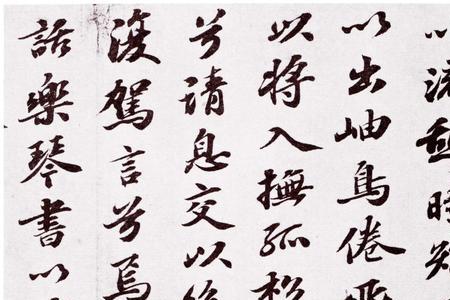 以流憩時矯
以出岫鳥倦飛
以將入撫孤松
兮請息交以絕
復駕言兮焉
話樂琴書以